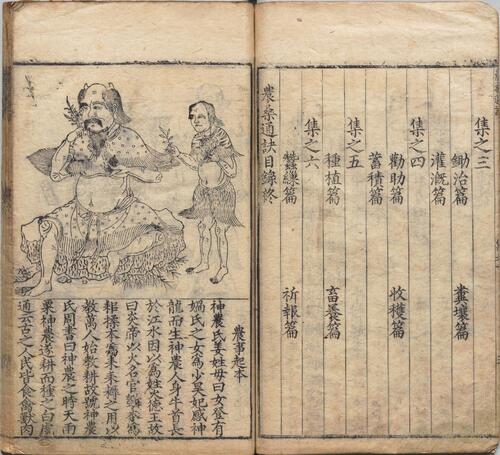 集之三
鋤治篇 糞壤篇
灌漑篇
集之四
勸助篇 收穫篇
蓄積篇
集之五
種植篇 畜養篇
集之六
蠶繅篇 祈報篇
農桑通訣目錄終
農事起本
神農氏姜姓母曰女登有
媧氏之女為少昊妃感神
龍而生神農人身牛首長
於江水因以為姓火德王故
曰炎帝以火名官斲木為
耜揉木為耒耒耨之用以
教萬人始教耕故號神農
氏周書曰神農之時天雨
粟神農遂耕而種之白虎
通云古之人民皆食禽獸肉